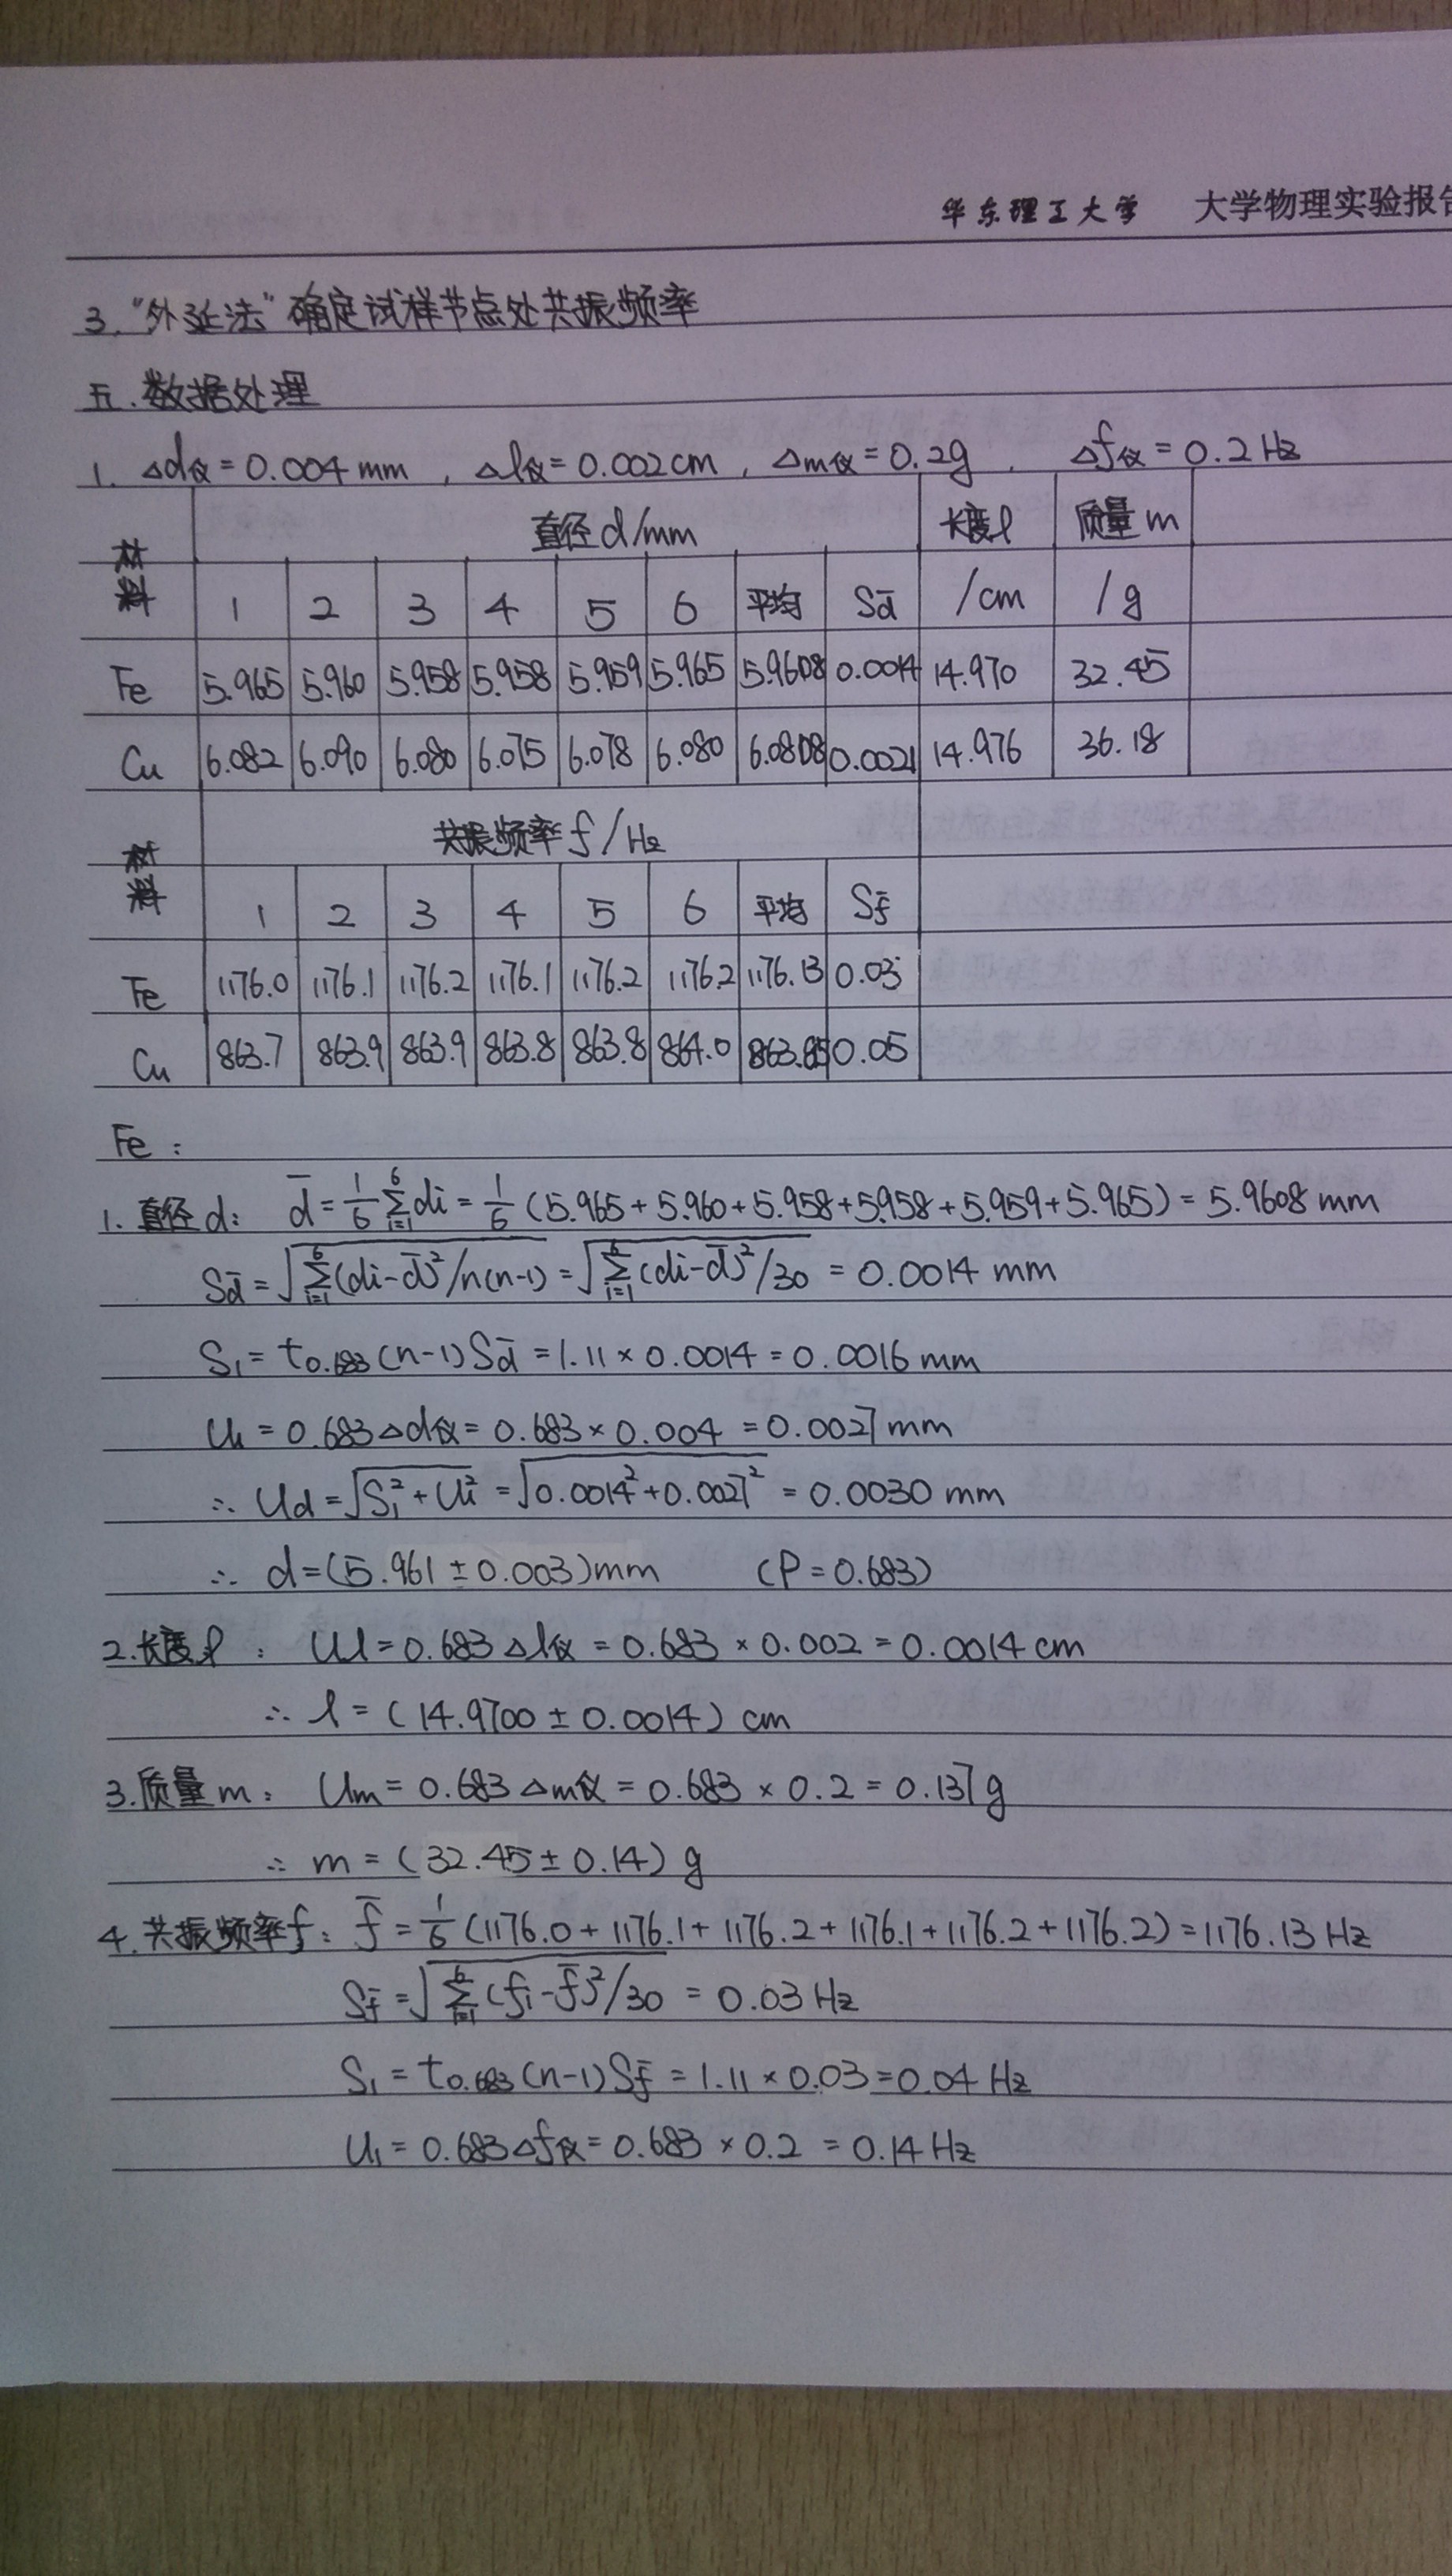 华东理工大学 大学物理实验报告
3. “外延法”确定试样节点处共振频率
五. 数据处理
1. Δd仪=0.004mm, Δl仪=0.002cm, Δm仪=0.2g, Δf仪=0.2Hz
材料 直径d/mm 长度l/cm 质量m/g
1 2 3 4 5 6 平均 Sd̄
Fe 5.965 5.960 5.958 5.958 5.959 5.965 5.9608 0.0014 14.970 32.45
Cu 6.082 6.090 6.080 6.075 6.078 6.080 6.0808 0.0021 14.976 36.18
材料 共振频率f/Hz
1 2 3 4 5 6 平均 Sf̄
Fe 1176.0 1176.1 1176.2 1176.1 1176.2 1176.2 1176.13 0.03
Cu 863.7 863.9 863.9 863.8 863.8 864.0 863.85 0.05
Fe:
1. 直径d: d̄=1/6 Σ(i=1→6) di = 1/6 (5.965+5.960+5.958+5.958+5.959+5.965)=5.9608mm
Sd̄=√(Σ(i=1→6)(di-d̄)²/n(n-1))=√(Σ(i=1→6)(di-d̄)²/30)=0.0014mm
S₁=t0.683(n-1)Sd̄=1.11×0.0014=0.0016mm
U₁=0.683Δd仪=0.683×0.004=0.0027mm
∴ Ud=√(S₁²+U₁²)=√(0.0014²+0.0027²)=0.0030mm
∴ d=(5.961±0.003)mm (P=0.683)
2. 长度l: Ul=0.683Δl仪=0.683×0.002=0.0014cm
∴ l=(14.9700±0.0014)cm
3. 质量m: Um=0.683Δm仪=0.683×0.2=0.137g
∴ m=(32.45±0.14)g
4. 共振频率f: f̄=1/6(1176.0+1176.1+1176.2+1176.1+1176.2+1176.2)=1176.13Hz
Sf̄=√(Σ(i=1→6)(fi-f̄)²/30)=0.03Hz
S₁=t0.683(n-1)Sf̄=1.11×0.03=0.04Hz
U₁=0.683Δf仪=0.683×0.2=0.14Hz